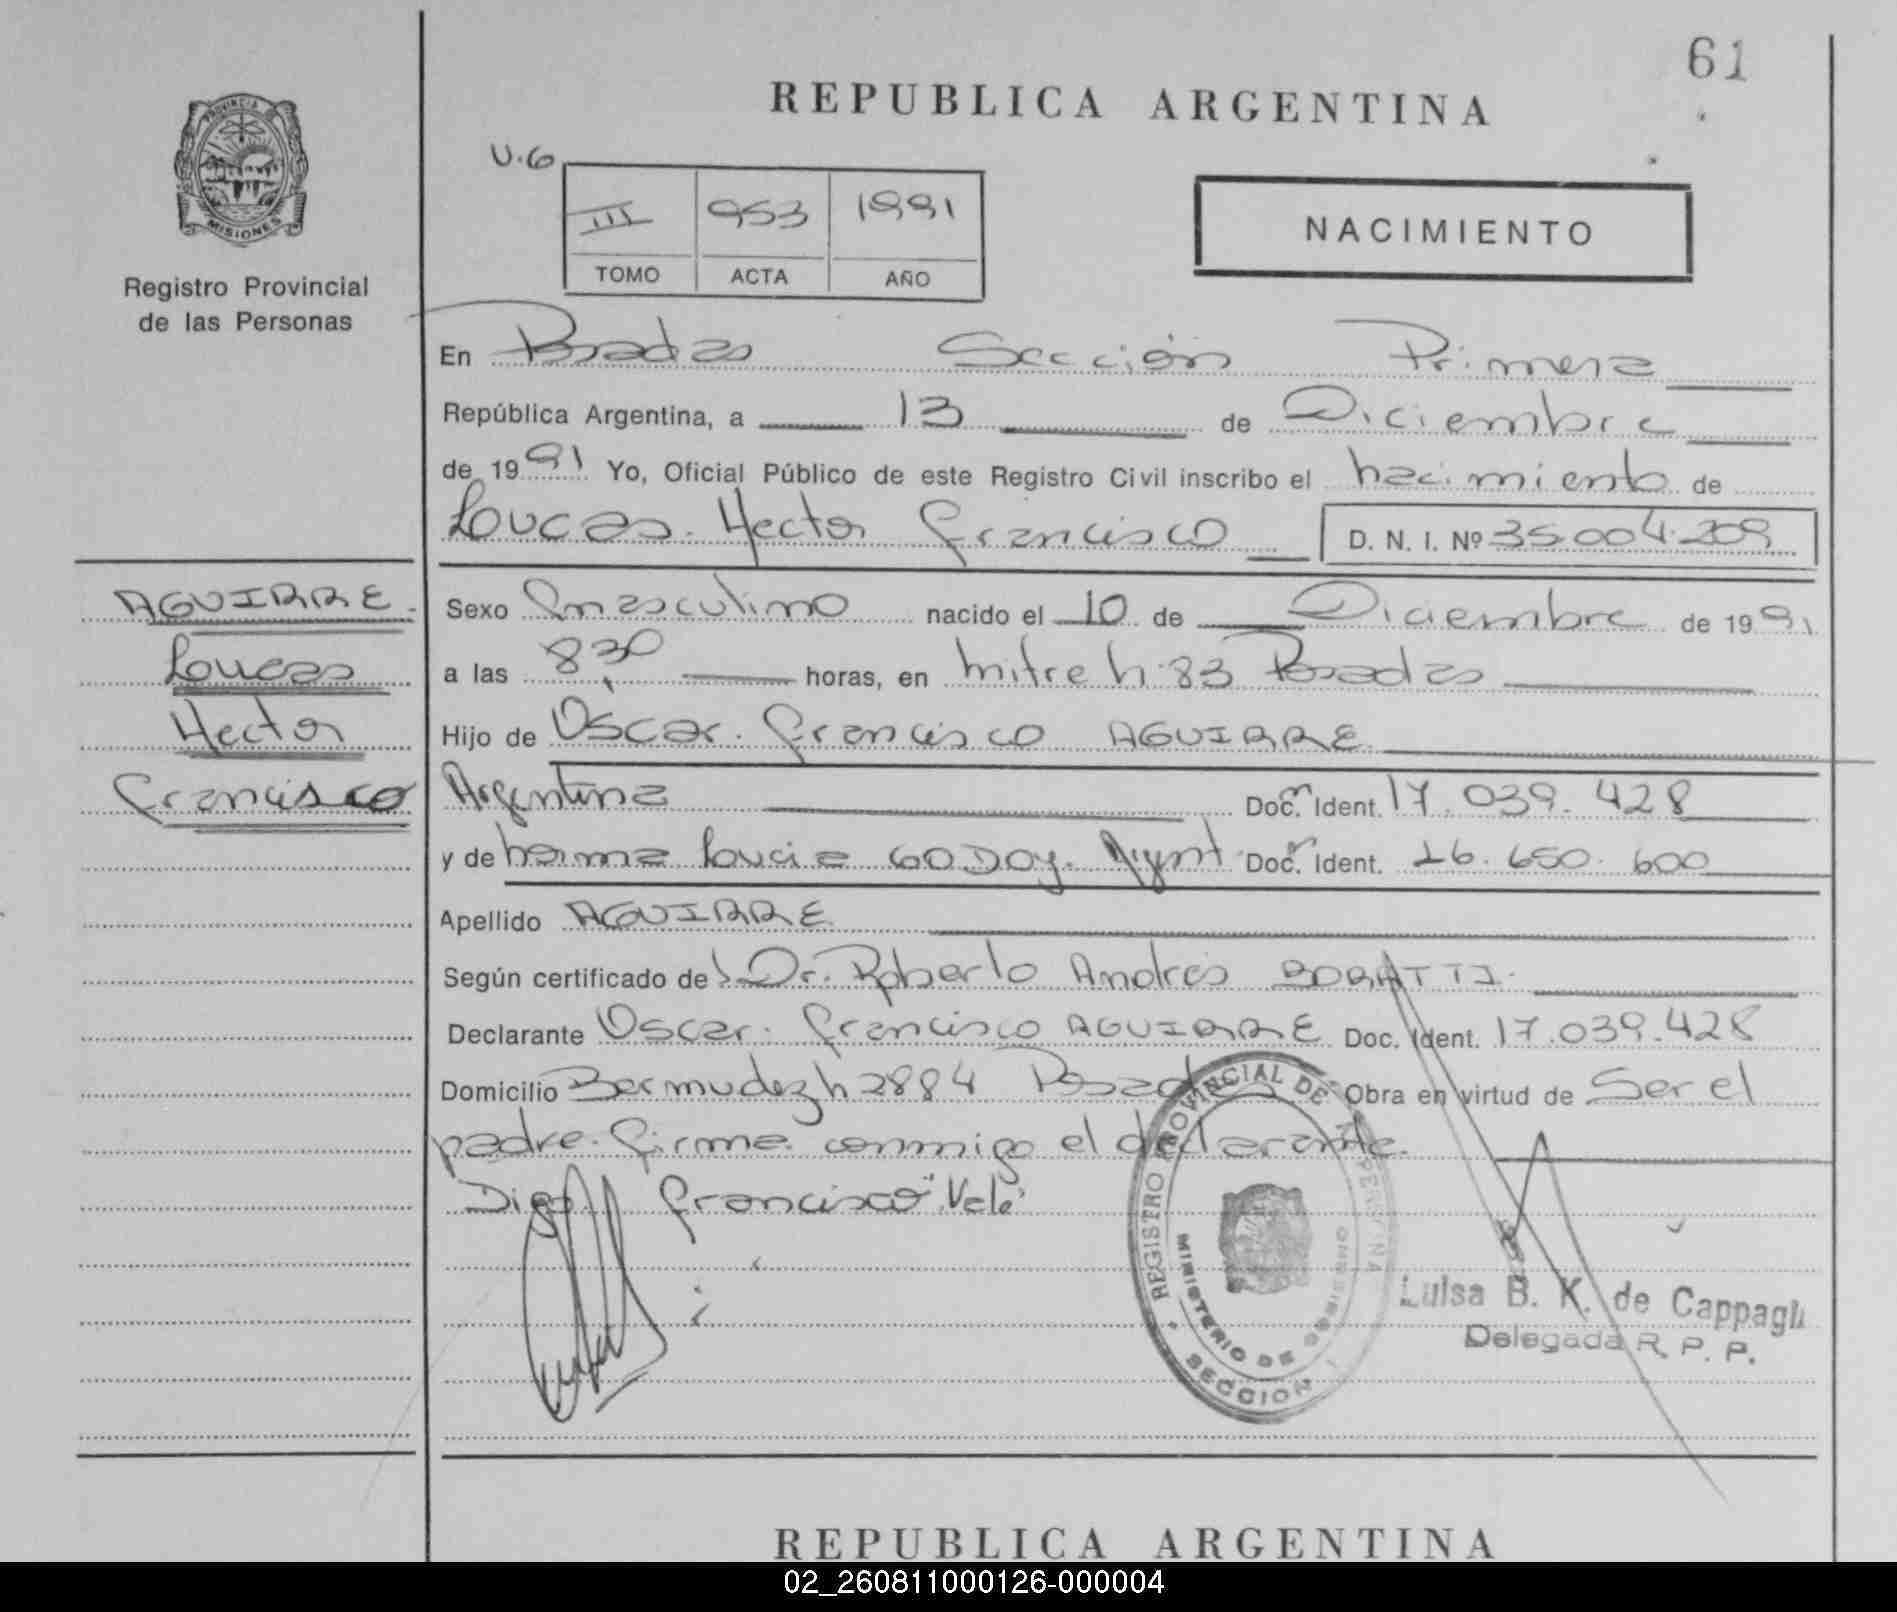 61
REPUBLICA ARGENTINA
PROVINCIA DE
MISIONES
Registro Provincial
de las Personas
U.6
III 953 1991
TOMO ACTA AÑO
NACIMIENTO
En Posadas Sección Primera
República Argentina, a 13 de Diciembre
de 1991 Yo, Oficial Público de este Registro Civil inscribo el nacimiento de
Loucas. Hector Francisco D. N. I. Nº 35.004.209
AGUIRRE.
Loucas
Hector
Francisco
Sexo masculino nacido el 10 de Diciembre de 1991
a las 8,30 horas, en mitre n. 83 Posadas
Hijo de Oscar. Francisco AGUIRRE
Argentina Doc. Ident. 17.039.428
y de Lucia GODOY. Argent. Doc. Ident. 16.650.600
Apellido AGUIRRE
Según certificado de Dr. Roberto Andres
Declarante Oscar. Francisco AGUIRRE Doc. Ident. 17.039.428
Domicilio Bermudez n 2884 Posadas Obra en virtud de Ser el
padre. firma conmigo el declarante.
Digo Francisco" Vale
REGISTRO PROVINCIAL DE
MINISTERIO DE GOBIERNO
SECCION
Luisa B. K. de Cappagli
Delegada R. P. P.
REPUBLICA ARGENTINA
02_260811000126-000004